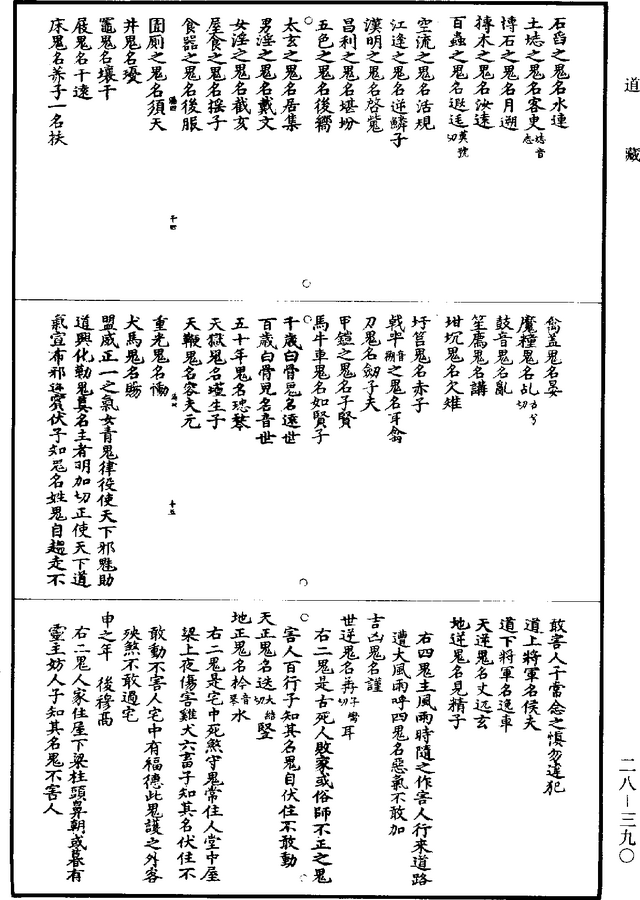 道藏
石舀之鬼名水連
土垯之鬼名客吏垯音忘
博石之鬼名月遡
搏木之鬼名汝遠
百蟲之鬼名遐廷莫號切
空流之鬼名活規
江逢之鬼名逆鱗子
漢明之鬼名啓
昌利之鬼名堪坋
五色之鬼名後嚮
太玄之鬼名居集
男淫之鬼名戴文
女淫之鬼名截亥
屋食之鬼名搖子
食器之鬼名後服
圂廁之鬼名須天
井鬼名瓊
竈鬼名壤干
屐鬼名干遠
床鬼名养子一名扶
翕盖鬼名晏
魔糧鬼名乩
鼓音鬼名亂
笙鷹鬼名講
坩坑鬼名欠雉
圩筥鬼名赤子
戟半之鬼名耳翕
刀鬼名劒子夫
甲鎧之鬼名子賢
馬牛車鬼名如賢子
千歲白骨鬼名遠世
百歲白骨鬼名音世
五十年鬼名
天獄鬼名瑾生子
天鞭鬼名容夫元
重光鬼名慟
犬馬鬼名賜
盟威正一之氣女青鬼律役使天下邪魅助
道興化勒鬼真名主者明加切正使天下道
氣宣布邪逃竄伏子知鬼名姓鬼自趨走不
敢害人子當念之慎勿違犯
道上將軍名侯夫
道下將軍名逸車
天逆鬼名丈远玄
地逆鬼名見精子
右四鬼主風雨時隨之作害人行來道路
遭大風雨呼四鬼名惡氣不敢加
吉凶鬼名謹
世逆鬼名再子彎切耳
右二鬼是古死人敗家或俗師不正之鬼
害人百行子知其名鬼自伏住不敢動
天正鬼名迭大結切堅
地正鬼名枔音琴水
右二鬼是宅中死煞守鬼常住人堂中屋
梁上夜傷害雞犬六畜子知其名伏住不
敢動不害人宅中有福德此鬼護之外客
殃煞不敢過宅
申之年 後穆禼
右二鬼人家住屋下梁柱頭鼻朝或暮有
靈主妨人子知其名鬼不害人
二八—三九〇